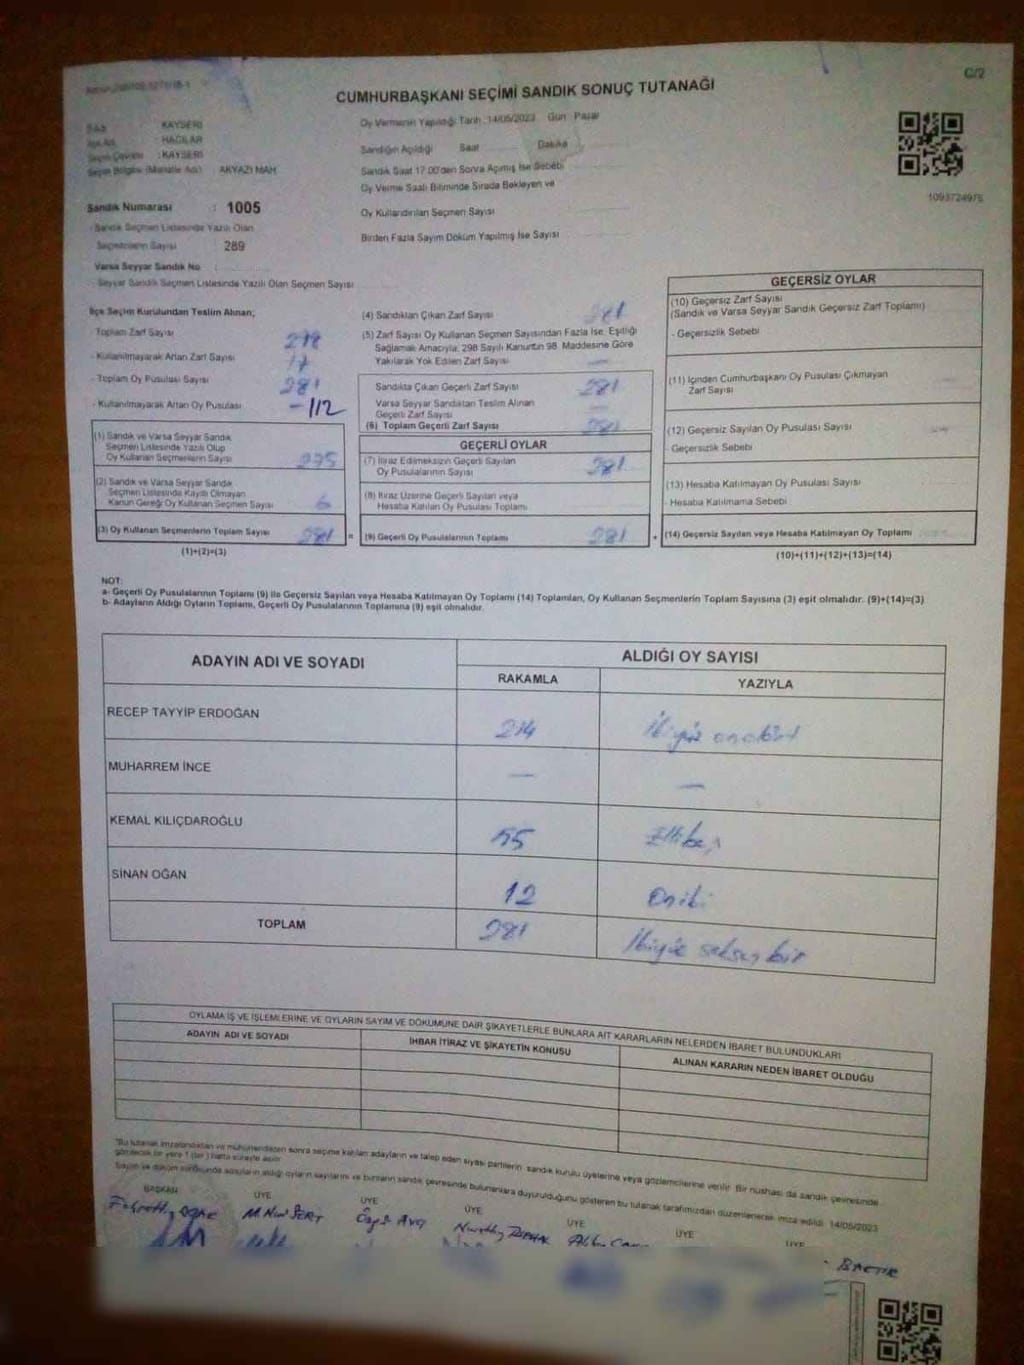 C/2
CUMHURBAŞKANI SEÇİMİ SANDIK SONUÇ TUTANAĞI
KAYSERİ
HACILAR
Seçim Çevresi : KAYSERİ
Seçim Bölgesi (Mahalle Adı) : AKYAZI MAH.
Sandık Numarası : 1005
- Sandık Seçmen Listesinde Yazılı Olan
Seçmenlerin Sayısı 289
Varsa Seyyar Sandık No :
- Seyyar Sandık Seçmen Listesinde Yazılı Olan Seçmen Sayısı
Oy Vermenin Yapıldığı Tarih :14/05/2023 Gün : Pazar
Sandığın Açıldığı Saat Dakika
Sandık Saat 17.00'den Sonra Açılmış İse Sebebi
Oy Verme Saati Bitiminde Sırada Bekleyen ve
Oy Kullandırılan Seçmen Sayısı
Birden Fazla Sayım Döküm Yapılmış İse Sayısı
1093724976
İlçe Seçim Kurulundan Teslim Alınan;
- Toplam Zarf Sayısı
- Kullanılmayarak Artan Zarf Sayısı 17
- Toplam Oy Pusulası Sayısı
- Kullanılmayarak Artan Oy Pusulası 112
(1) Sandık ve Varsa Seyyar Sandık
Seçmen Listesinde Yazılı Olup
Oy Kullanan Seçmenlerin Sayısı 275
(2) Sandık ve Varsa Seyyar Sandık
Seçmen Listesinde Kayıtlı Olmayan
Kanun Gereği Oy Kullanan Seçmen Sayısı 6
(3) Oy Kullanan Seçmenlerin Toplam Sayısı 281 =
(1)+(2)=(3)
(4) Sandıktan Çıkan Zarf Sayısı 281
(5) Zarf Sayısı Oy Kullanan Seçmen Sayısından Fazla İse, Eşitliği
Sağlamak Amacıyla, 298 Sayılı Kanun'un 98. Maddesine Göre
Yakılarak Yok Edilen Zarf Sayısı —
Sandıkta Çıkan Geçerli Zarf Sayısı 281
Varsa Seyyar Sandıktan Teslim Alınan
Geçerli Zarf Sayısı —
(6) Toplam Geçerli Zarf Sayısı 281
GEÇERLİ OYLAR
(7) İtiraz Edilmeksizin Geçerli Sayılan
Oy Pusulalarının Sayısı 281
(8) İtiraz Üzerine Geçerli Sayılan veya
Hesaba Katılan Oy Pusulası Toplamı
(9) Geçerli Oy Pusulalarının Toplamı 281 +
GEÇERSİZ OYLAR
(10) Geçersiz Zarf Sayısı
(Sandık ve Varsa Seyyar Sandık Geçersiz Zarf Toplamı)
- Geçersizlik Sebebi
(11) İçinden Cumhurbaşkanı Oy Pusulası Çıkmayan
Zarf Sayısı
(12) Geçersiz Sayılan Oy Pusulası Sayısı
- Geçersizlik Sebebi
(13) Hesaba Katılmayan Oy Pusulası Sayısı
- Hesaba Katılmama Sebebi
(14) Geçersiz Sayılan veya Hesaba Katılmayan Oy Toplamı
(10)+(11)+(12)+(13)=(14)
NOT:
a- Geçerli Oy Pusulalarının Toplamı (9) ile Geçersiz Sayılan veya Hesaba Katılmayan Oy Toplamı (14) Toplamları, Oy Kullanan Seçmenlerin Toplam Sayısına (3) eşit olmalıdır. (9)+(14)=(3)
b- Adayların Aldığı Oyların Toplamı, Geçerli Oy Pusulalarının Toplamına (9) eşit olmalıdır.
ADAYIN ADI VE SOYADI
ALDIĞI OY SAYISI
RAKAMLA
YAZIYLA
RECEP TAYYİP ERDOĞAN 214 İkiyüz ondört
MUHARREM İNCE — —
KEMAL KILIÇDAROĞLU 55 Ellibeş
SİNAN OĞAN 12 Oniki
TOPLAM 281 İkiyüz seksen bir
OYLAMA İŞ VE İŞLEMLERİNE VE OYLARIN SAYIM VE DÖKÜMÜNE DAİR ŞİKAYETLERLE BUNLARA AİT KARARLARIN NELERDEN İBARET BULUNDUKLARI
ADAYIN ADI VE SOYADI
İHBAR İTİRAZ VE ŞİKAYETİN KONUSU
ALINAN KARARIN NEDEN İBARET OLDUĞU
*Bu tutanak imzalandıktan ve mühürlendikten sonra seçime katılan adayların ve talep eden siyasi partilerin, sandık kurulu üyelerine veya gözlemcilerine verilir. Bir nüshası da sandık çevresinde
görülecek bir yere 1 (bir) hafta süreyle asılır.
Sayım ve döküm sonucunda adayların aldığı oyların sayılarını ve bunların sandık çevresinde bulunanlara duyurulduğunu gösteren bu tutanak tarafımızdan düzenlenerek imza edildi. 14/05/2023
BAŞKAN
ÜYE
ÜYE
ÜYE
ÜYE
ÜYE
ÜYE